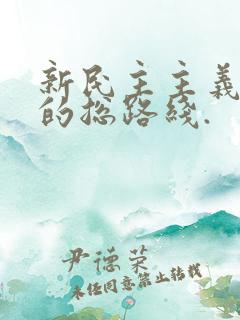 新民主主義
的总路綫.
尹德荣
未经同意禁止转载